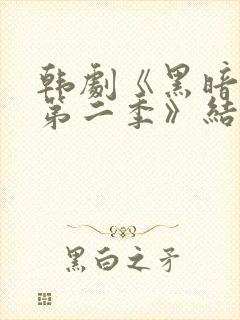 韩劇《黑暗
第二季》結
黑白之矛